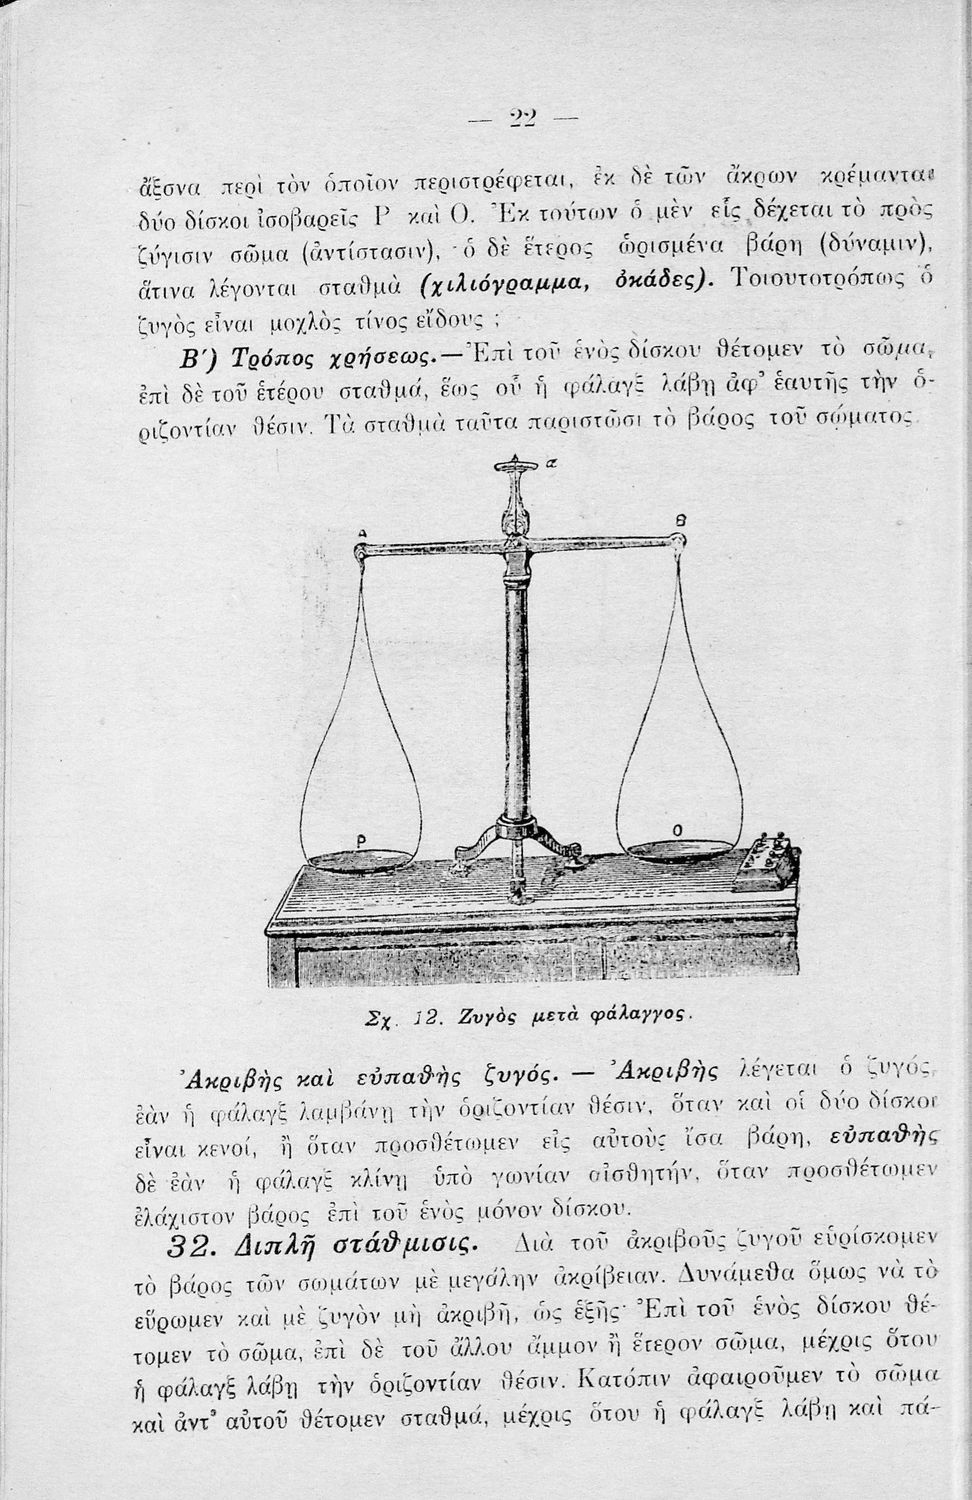 — 22 —
ἄξονα περὶ τὸν ὁποῖον περιστρέφεται, ἐκ δὲ τῶν ἄκρων κρέμανται
δύο δίσκοι ἰσοβαρεῖς P καὶ O. Ἐκ τούτων ὁ μὲν εἷς δέχεται τὸ πρὸς
ζύγισιν σῶμα (ἀντίστασιν), ὁ δὲ ἕτερος ὡρισμένα βάρη (δύναμιν),
ἅτινα λέγονται σταθμὰ (χιλιόγραμμα, ὀκάδες). Τοιουτοτρόπως ὁ
ζυγὸς εἶναι μοχλὸς τίνος εἴδους ;
Β΄) Τρόπος χρήσεως.—Ἐπὶ τοῦ ἑνὸς δίσκου θέτομεν τὸ σῶμα,
ἐπὶ δὲ τοῦ ἑτέρου σταθμά, ἕως οὗ ἡ φάλαγξ λάβῃ ἀφ’ ἑαυτῆς τὴν ὁ-
ριζοντίαν θέσιν. Τὰ σταθμὰ ταῦτα παριστῶσι τὸ βάρος τοῦ σώματος.
a
A
B
P
O
Σχ. 12. Ζυγὸς μετὰ φάλαγγος.
Ἀκριβὴς καὶ εὐπαθὴς ζυγός. — Ἀκριβὴς λέγεται ὁ ζυγός,
ἐὰν ἡ φάλαγξ λαμβάνῃ τὴν ὁριζοντίαν θέσιν, ὅταν καὶ οἱ δύο δίσκοι
εἶναι κενοί, ἢ ὅταν προσθέτωμεν εἰς αὐτοὺς ἴσα βάρη, εὐπαθὴς
δὲ ἐὰν ἡ φάλαγξ κλίνῃ ὑπὸ γωνίαν αἰσθητήν, ὅταν προσθέτωμεν
ἐλάχιστον βάρος ἐπὶ τοῦ ἑνὸς μόνον δίσκου.
32. Διπλῆ στάθμισις. Διὰ τοῦ ἀκριβοῦς ζυγοῦ εὑρίσκομεν
τὸ βάρος τῶν σωμάτων μὲ μεγάλην ἀκρίβειαν. Δυνάμεθα ὅμως νὰ τὸ
εὕρωμεν καὶ μὲ ζυγὸν μὴ ἀκριβῆ, ὡς ἑξῆς· Ἐπὶ τοῦ ἑνὸς δίσκου θέ-
τομεν τὸ σῶμα, ἐπὶ δὲ τοῦ ἄλλου ἄμμον ἢ ἕτερον σῶμα, μέχρις ὅτου
ἡ φάλαγξ λάβῃ τὴν ὁριζοντίαν θέσιν. Κατόπιν ἀφαιροῦμεν τὸ σῶμα
καὶ ἀντ’ αὐτοῦ θέτομεν σταθμά, μέχρις ὅτου ἡ φάλαγξ λάβῃ καὶ πά-